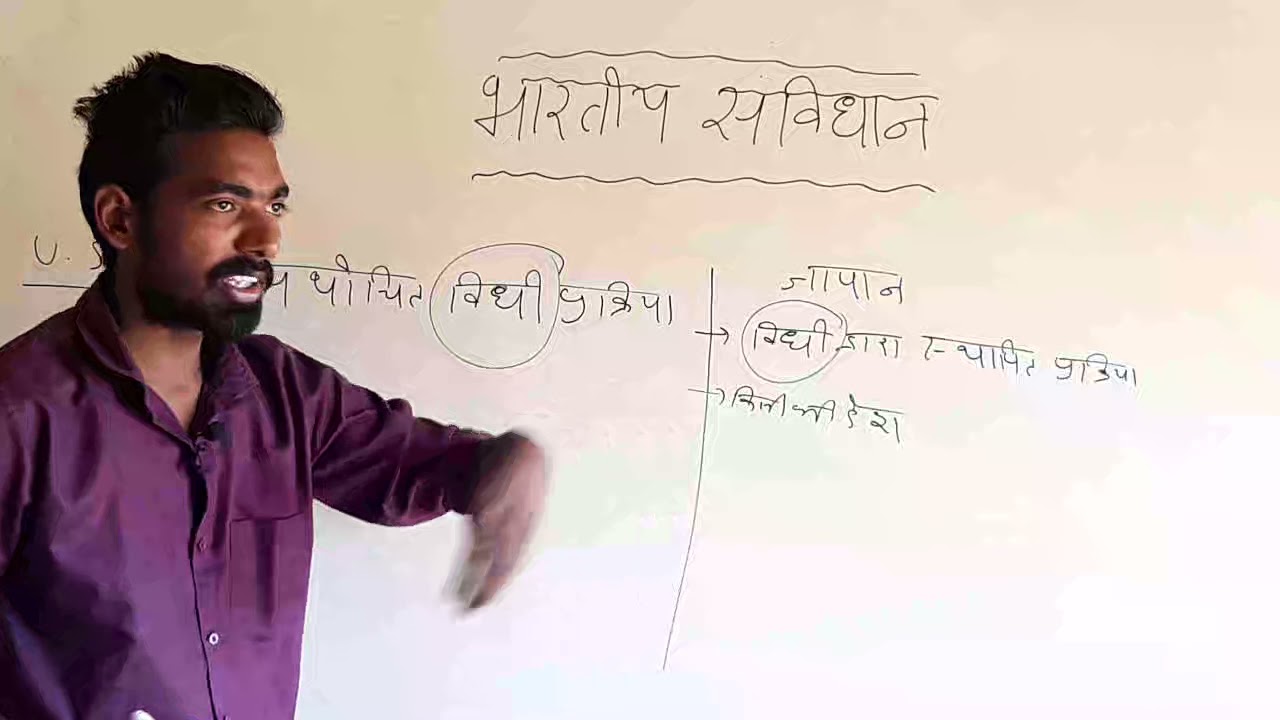 भारतीय संविधान
U. S
थोचित विधी प्रक्रिया
जापान
→ विधी द्वारा स्थापित प्रक्रिया
→